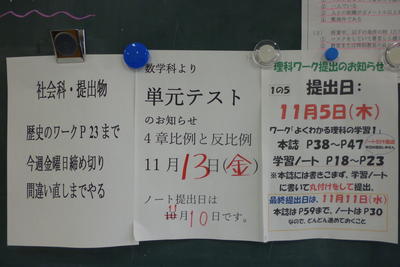 社会科・提出物
歴史のワークP23まで
今週金曜日締め切り
間違い直しまでやる
数学科より
単元テスト
のお知らせ
4章比例と反比例
11月13日(金)
ノート提出日は
11月10日です。
理科ワーク提出のお知らせ
1の5 提出日:
11月5日(木)
ワーク「よくわかる理科の学習1」
本誌 P38〜P47
学習ノート P18〜P23
※本誌には書きこまず、学習ノート
に書いて丸付けをして提出。
最終提出日は、11月11日(水)
本誌はP59まで、ノートはP30
なので、どんどん進めておくこと